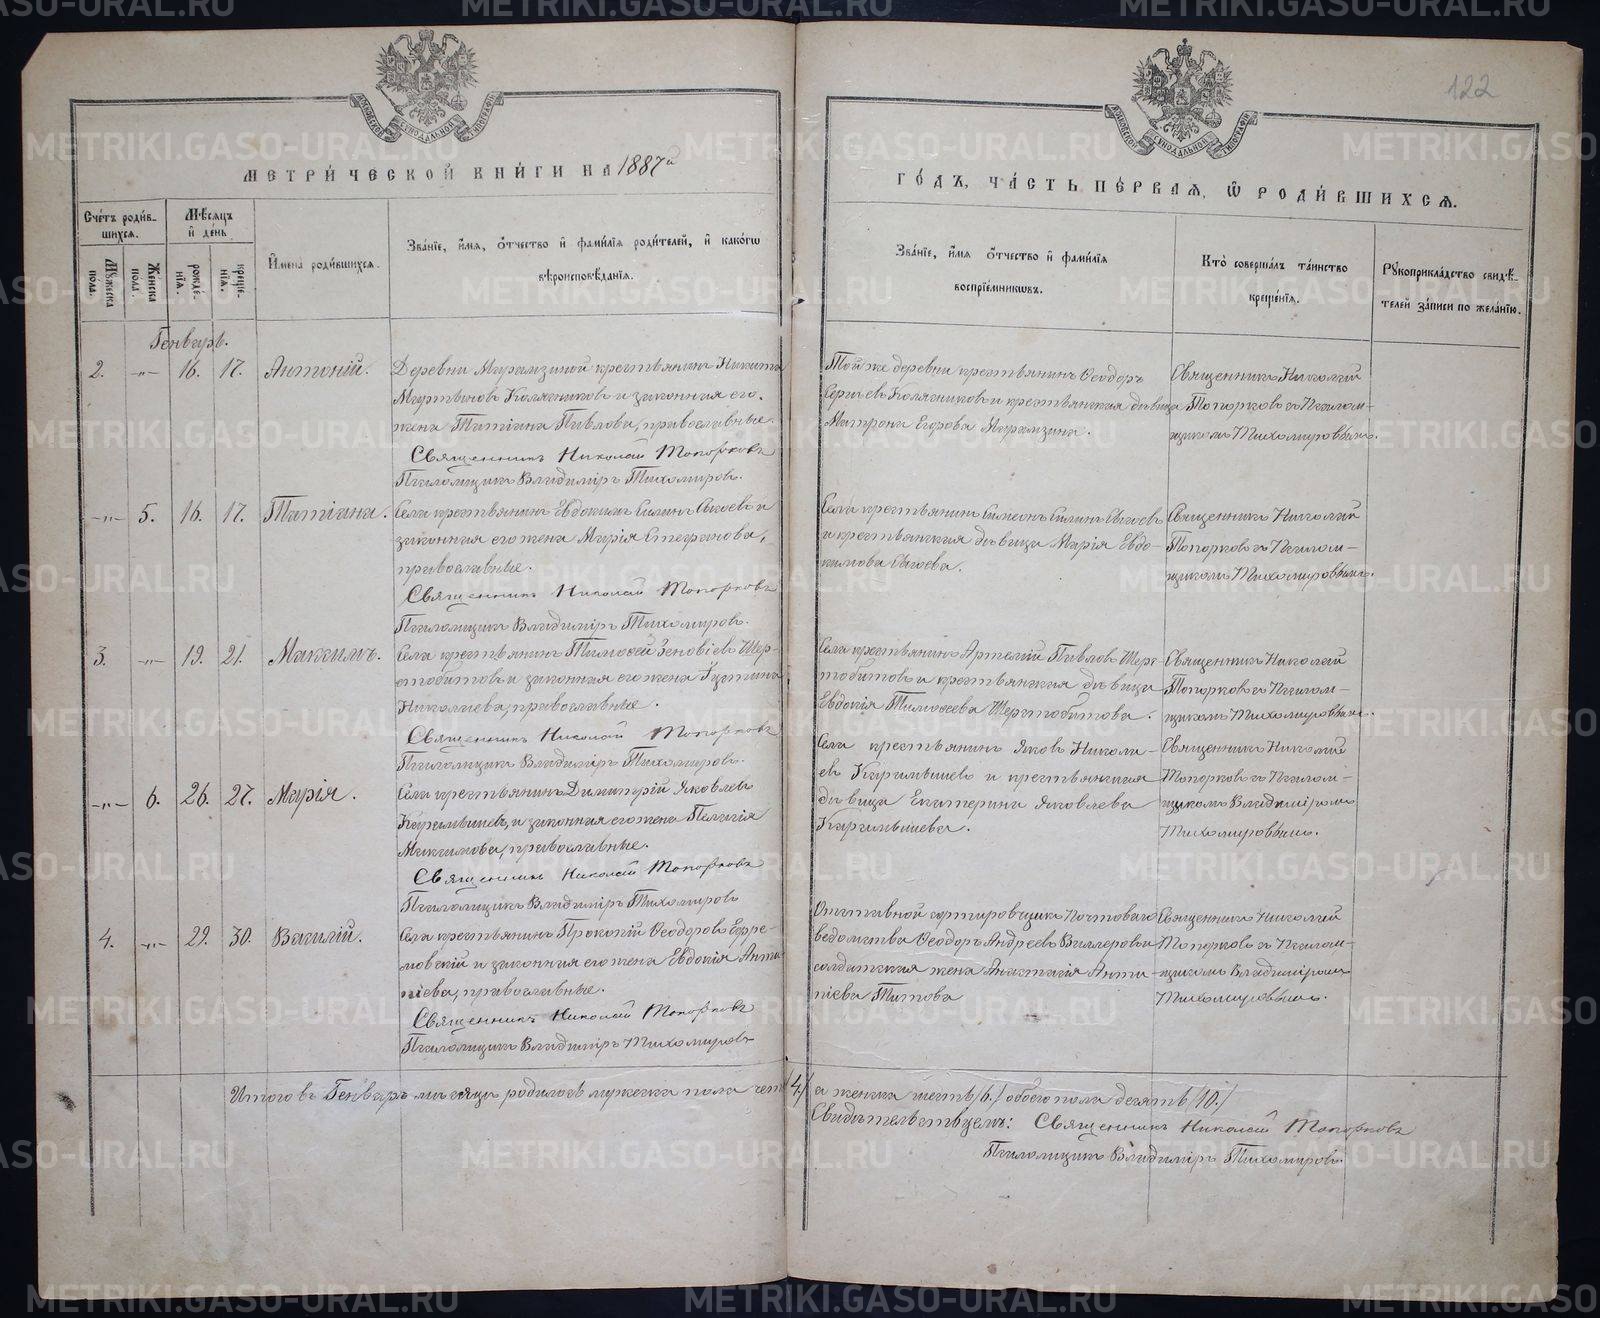 122
МЕТРИ́ЧЕСКОЙ КНИ́ГИ НА 1887й
ГО́ДЪ, ЧА́СТЬ ПЕ́РВАЯ, Ѿ РОДИ́ВШИХСЯ.
Сче́тъ роди́вшихся.
Мѣ́сяцъ и҆ де́нь
Мꙋжеска пола.
Же́нска пола.
рожде́нїя.
креще́нїя.
И҆мена̀ роди́вшихся.
Зва́нїе, и҆́мя, ѻ҆́тчество и҆ фами́лїя роди́телей, и҆ како́гѡ
вѣроисповѣ́данїя.
Зва́нїе, и҆́мя ѻ҆́тчество и҆ фами́лїя
воспрїе́мникѡвъ.
Кто̀ соверша́лъ та́инство
креще́нїя.
Рꙋкоприкла́дство свидѣ́телей за́писи по жела́нїю.
Генварь.
2. -"- 16. 17. Антоній.
Деревни Мурамзиной крестьянинъ Никита
Мартыновъ Колясниковъ и законная его
жена Татіана Павлова, православные.
Священникъ Николай Топорковъ
Псаломщикъ Владиміръ Тихомировъ.
Той же деревни крестьянинъ Ѳеодоръ
Сергѣевъ Колясниковъ и крестьянская дѣвица
Матрона Егорова Мурамзина.
Священникъ Николай
Топорковъ съ Псалом-
щикомъ Тихомировымъ.
-"- 5. 16. 17. Татіана.
Села крестьянинъ Евдокимъ Силинъ Сысоевъ и
законная его жена Марія Стефанова,
православные.
Священникъ Николай Топорковъ
Псаломщикъ Владиміръ Тихомировъ.
Села крестьянинъ Симеонъ Силинъ Сысоевъ
и крестьянская дѣвица Марія Евдо-
кимова Сысоева.
Священникъ Николай
Топорковъ съ Псалом-
щикомъ Тихомировымъ.
3. -"- 19. 21. Максимъ.
Села крестьянинъ Тимоѳей Зеновіевъ Шер-
стобитовъ и законная его жена Іустина
Николаева, православные.
Священникъ Николай Топорковъ
Псаломщикъ Владиміръ Тихомировъ.
Села крестьянинъ Артемій Павловъ Шерс-
тобитовъ и крестьянская дѣвица
Евдокія Тимоѳеева Шерстобитова.
Священникъ Николай
Топорковъ съ Псалом-
щикомъ Тихомировымъ.
-"- 6. 26. 27. Марія.
Села крестьянинъ Димитрій Яковлевъ
Карамышевъ, и законная его жена Пелагія
Максимова, православные.
Священникъ Николай Топорковъ
Псаломщикъ Владиміръ Тихомировъ
Села крестьянинъ Яковъ Никола-
евъ Карамышевъ и крестьянская
дѣвица Екатерина Яковлева
Карамышева.
Священникъ Николай
Топорковъ съ Псалом-
щикомъ Владиміромъ
Тихомировымъ.
4. -"- 29. 30. Василій.
Села крестьянинъ Прокопій Ѳеодоровъ Ефре-
мовскій и законная его жена Евдокія Анти-
піева, православные.
Священникъ Николай Топорковъ
Псаломщикъ Владиміръ Тихомировъ
Отставной сортировщикъ Почтоваго
ведомства Ѳеодоръ Андреевъ Виллеровъ и
солдатская жена Анастасія Анти-
піева Титова
Священникъ Николай
Топорковъ съ Псалом-
щикомъ Владиміромъ
Тихомировымъ.
Итого въ Генварѣ мѣсяцѣ родилось мужеска пола чет /4./ а женска шесть /6./ обоего пола десять /10./
Свидѣтельствуемъ: Священникъ Николай Топорковъ
Псаломщикъ Владиміръ Тихомировъ.
METRIKI.GASO-URAL.RU